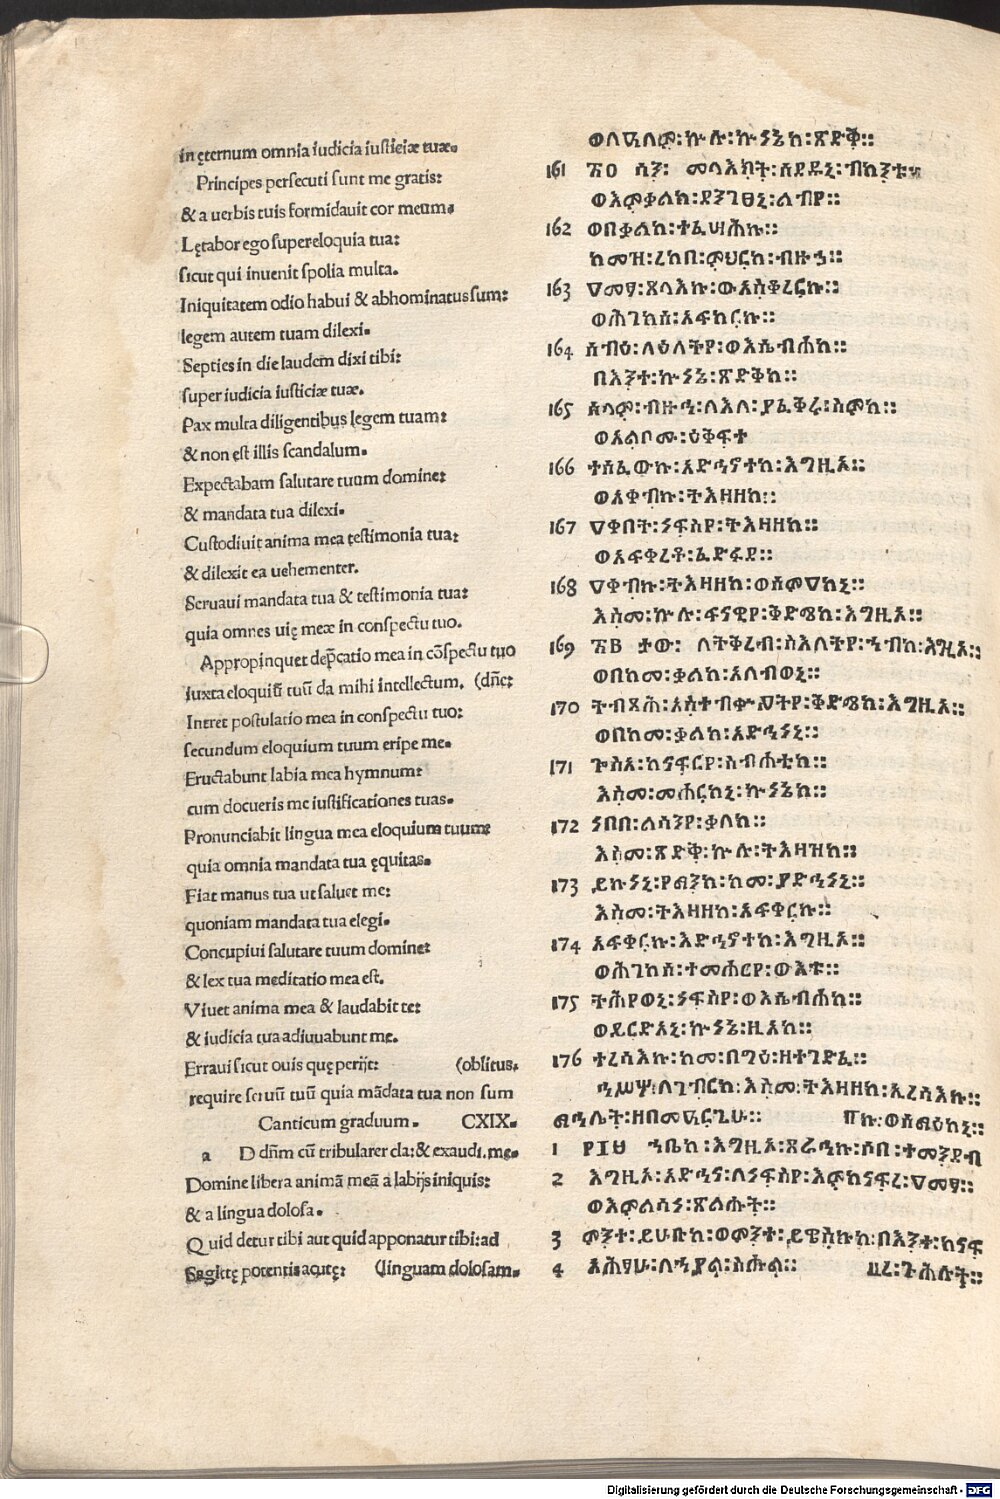 in ęternum omnia iudicia iusticiæ tuæ.
Principes persecuti sunt me gratis:
& a uerbis tuis formidauit cor meum.
Lętabor ego super eloquia tua:
sicut qui inuenit spolia multa.
Iniquitatem odio habui & abhominatus sum:
legem autem tuam dilexi.
Septies in die laudem dixi tibi:
super iudicia iusticiæ tuæ.
Pax multa diligentibus legem tuam:
& non est illis scandalum.
Expectabam salutare tuum domine:
& mandata tua dilexi.
Custodiuit anima mea testimonia tua:
& dilexit ea uehementer.
Seruaui mandata tua & testimonia tua:
quia omnes uię meæ in conspectu tuo.
Appropinquet dep̃catio mea in cõspectu tuo
iuxta eloquiũ tuũ da mihi intellectum. (dñe:
Intret postulatio mea in conspectu tuo:
secundum eloquium tuum eripe me.
Eructabunt labia mea hymnum:
cum docueris me iustificationes tuas.
Pronunciabit lingua mea eloquium tuum:
quia omnia mandata tua ęquitas.
Fiat manus tua ut saluet me:
quoniam mandata tua elegi.
Concupiui salutare tuum domine:
& lex tua meditatio mea est.
Viuet anima mea & laudabit te:
& iudicia tua adiuuabunt me.
Erraui sicut ouis quę perijt: (oblitus.
require seruũ tuũ quia mãdata tua non sum
Canticum graduum. CXIX.
a D dñm cũ tribularer cla: & exaudi. me.
Domine libera animã meã a labijs iniquis:
& a lingua dolosa.
Quid detur tibi aut quid apponatur tibi: ad
Sagittę potentis acutę: (linguam dolosam.
ወለዓለም፡ኵሉ፡ኵነኔከ፡ጽድቅ።
161 መላእክት፡ሰደዱኒ፡በከንቱ።
ወእምቃልከ፡ደንገፀኒ፡ልብየ።
162 ወበቃልከ፡ተፈሣሕኩ።
ከመዝ፡ረከበ፡ምህርካ፡ብዙኅ።
163 ዓመፃ፡ጸላእኩ፡ወአስቆረርኩ።
ወሕገከሰ፡አፍቀርኩ።
164 ስብዕ፡ለዕለትየ፡ወእሴብሐከ።
በእንተ፡ኵነኔ፡ጽድቅከ።
165 ሰላም፡ብዙኅ፡ለእለ፡ያፈቅሩ፡ስመከ።
ወአልቦሙ፡ዕቅፍተ
166 ተሰፈውኩ፡አድኅኖተከ፡እግዚኦ።
ወአቀብኩ፡ትእዛዘከ።
167 ዓቀበት፡ነፍስየ፡ትእዛዘከ።
ወአፍቀረቶ፡ፈድፋደ።
168 ዓቀብኩ፡ትእዛዘከ፡ወስምዓከኒ።
እስመ፡ኵሉ፡ፍናዊየ፡ቅድሜከ፡እግዚኦ።
169 ታው፡ ለትቅረብ፡ስእለትየ፡ኀቤከ፡እግዚኦ።
ወበከመ፡ቃልከ፡አለብወኒ።
170 ትብጻሕ፡አስተብቍዖትየ፡ቅድሜከ፡እግዚኦ።
ወበከመ፡ቃልከ፡አድኅነኒ።
171 ጕስዓ፡ከናፍርየ፡ስብሐቲከ።
እስመ፡መሐርከኒ፡ኵነኔከ።
172 ነበበ፡ልሳንየ፡ቃለከ።
እስመ፡ጽድቅ፡ኵሉ፡ትእዛዝከ።
173 ይኩነኒ፡የማንከ፡ከመ፡ያድኅነኒ።
እስመ፡ትእዛዘከ፡አፍቀርኩ።
174 አፍቀርኩ፡አድኅኖተከ፡እግዚኦ።
ወሕገከሰ፡ተመሐርየ፡ውእቱ።
175 ትሕየወኒ፡ነፍስየ፡ወእሴብሐከ።
ወይርድአኒ፡ኵነኔ፡ዚአከ።
176 ተረሳእኩ፡ከመ፡በግዕ፡ዘተገድፈ።
ኅሥሦ፡ለገብርከ፡እስመ፡ትእዛዘከ፡ኢረሳእኩ።
ማኅሌት፡ዘበመዓርጊሁ።
1 ኀቤከ፡እግዚኦ፡ጸራኅኩ፡ሶበ፡ተመንደብ
2 እግዚኦ፡አድኅና፡ለነፍስየ፡እምከናፍረ፡ዓመፃ።
ወእምልሳነ፡ጽልሑት።
3 ምንተ፡ይሁቡከ፡ወምንተ፡ይዌስኩከ፡በእንተ፡ከናፍ
4 አሕፃሁ፡ለኃያል፡ስሑል።